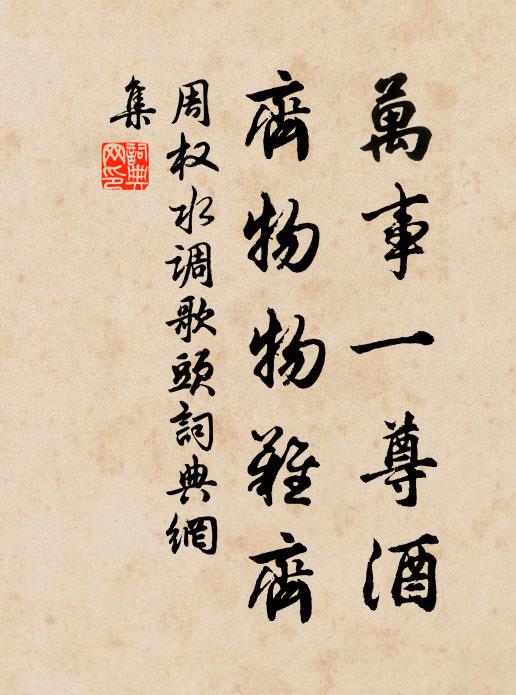 萬事一尊酒
齊物物難齊
周权水调歌頭詞典網
集
詞典
网印